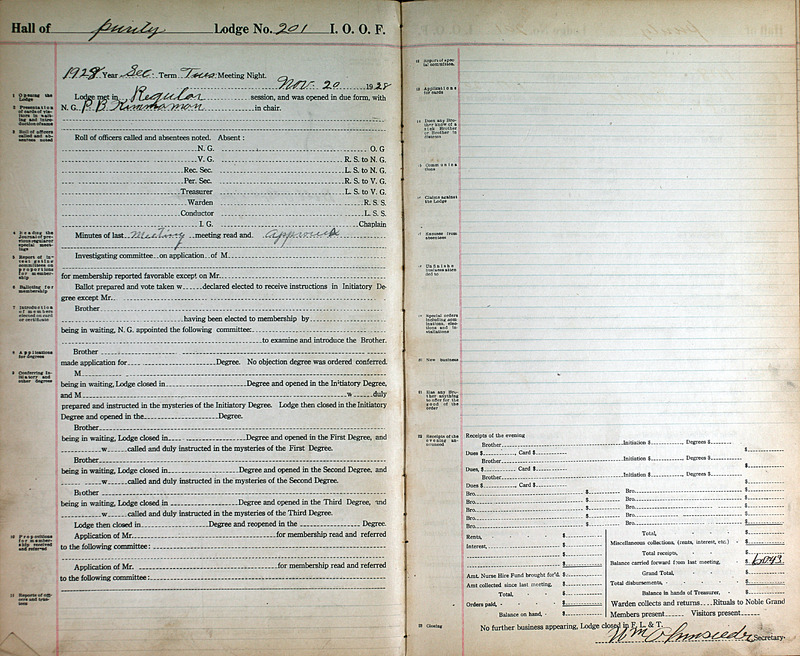 Hall of purity Lodge No. 201 I. O. O. F.
1928 Year Sec. Term Tues Meeting Night.
Nov. 20 1928
1 Opening the Lodge
Lodge met in Regular session, and was opened in due form, with
N. G. P B in chair.
3 Roll of officers called and absentees noted
Roll of officers called and absentees noted. Absent:
N. G. O. G
V. G. R. S. to N. G.
Rec. Sec. L. S. to N. G.
Per. Sec. R. S. to V. G.
Treasurer L. S. to V. G.
Warden R. S. S.
Conductor L. S. S.
I. G. Chaplain
Minutes of last Meeting meeting read and Approved
Investigating committee on application of M
for membership reported favorable except on Mr.
6 Balloting for membership
Ballot prepared and vote taken w declared elected to receive instructions in Initiatory De-
gree except Mr.
7 Introduction of members elected on card or certificate
Brother
having been elected to membership by
being in waiting, N. G. appointed the following committee:
to examine and introduce the Brother.
8 Applications for degrees
Brother
made application for Degree. No objection degree was ordered conferred.
9 Conferring Initiatory and other degrees
M
being in waiting, Lodge closed in Degree and opened in the Initiatory Degree,
and M w duly
prepared and instructed in the mysteries of the Initiatory Degree. Lodge then closed in the Initiatory
Degree and opened in the Degree.
Brother
being in waiting, Lodge closed in Degree and opened in the First Degree, and
w called and duly instructed in the mysteries of the First Degree.
Brother
being in waiting, Lodge closed in Degree and opened in the Second Degree, and
w called and duly instructed in the mysteries of the Second Degree.
Brother
being in waiting, Lodge closed in Degree and opened in the Third Degree, and
w called and duly instructed in the mysteries of the Third Degree.
Lodge then closed in Degree and reopened in the Degree.
10 Propositions for membership received and referred
Application of Mr. for membership read and referred
to the following committee:
Application of Mr. for membership read and referred
to the following committee:
11 Reports of officers and trustees
12 Report of special committees.
13 Applications for cards
14 Does any Brother know of a sick Brother or Brother in distress
Communications
Claims against the Lodge
Excuses from absentees
Unfinished business attended to
Special orders including nominations, elections and installations
20 New business
21 Has any Brother anything to offer for the good of the order
22 Receipts of the evening announced
Receipts of the evening
Brother Initiation $ , Degrees $
Dues $ , Card $ $
Brother Initiation $ , Degrees $
Dues, $ , Card $ $
Brother Initiation $ , Degrees $
Dues $ , Card $ $
Bro. $ Bro. $
Bro. $ Bro. $
Bro. $ Bro. $
Bro. $ Bro. $
Rents, $ Total, $
Interest, $ Miscellaneous collections, (rents, interest, etc.) $
$ Total receipts, $
$ Balance carried forward from last meeting, $
Amt. Nurse Hire Fund brought for'd. $ Grand Total, $
Amt collected since last meeting, $ Total disbursements, $
Total, $ Balance in hands of Treasurer, $
Orders paid, $ Warden collects and returns Rituals to Noble Grand
Balance on hand, $ Members present Visitors present
23 Closing
No further business appearing, Lodge closed in F. L. & T.
Secretary.